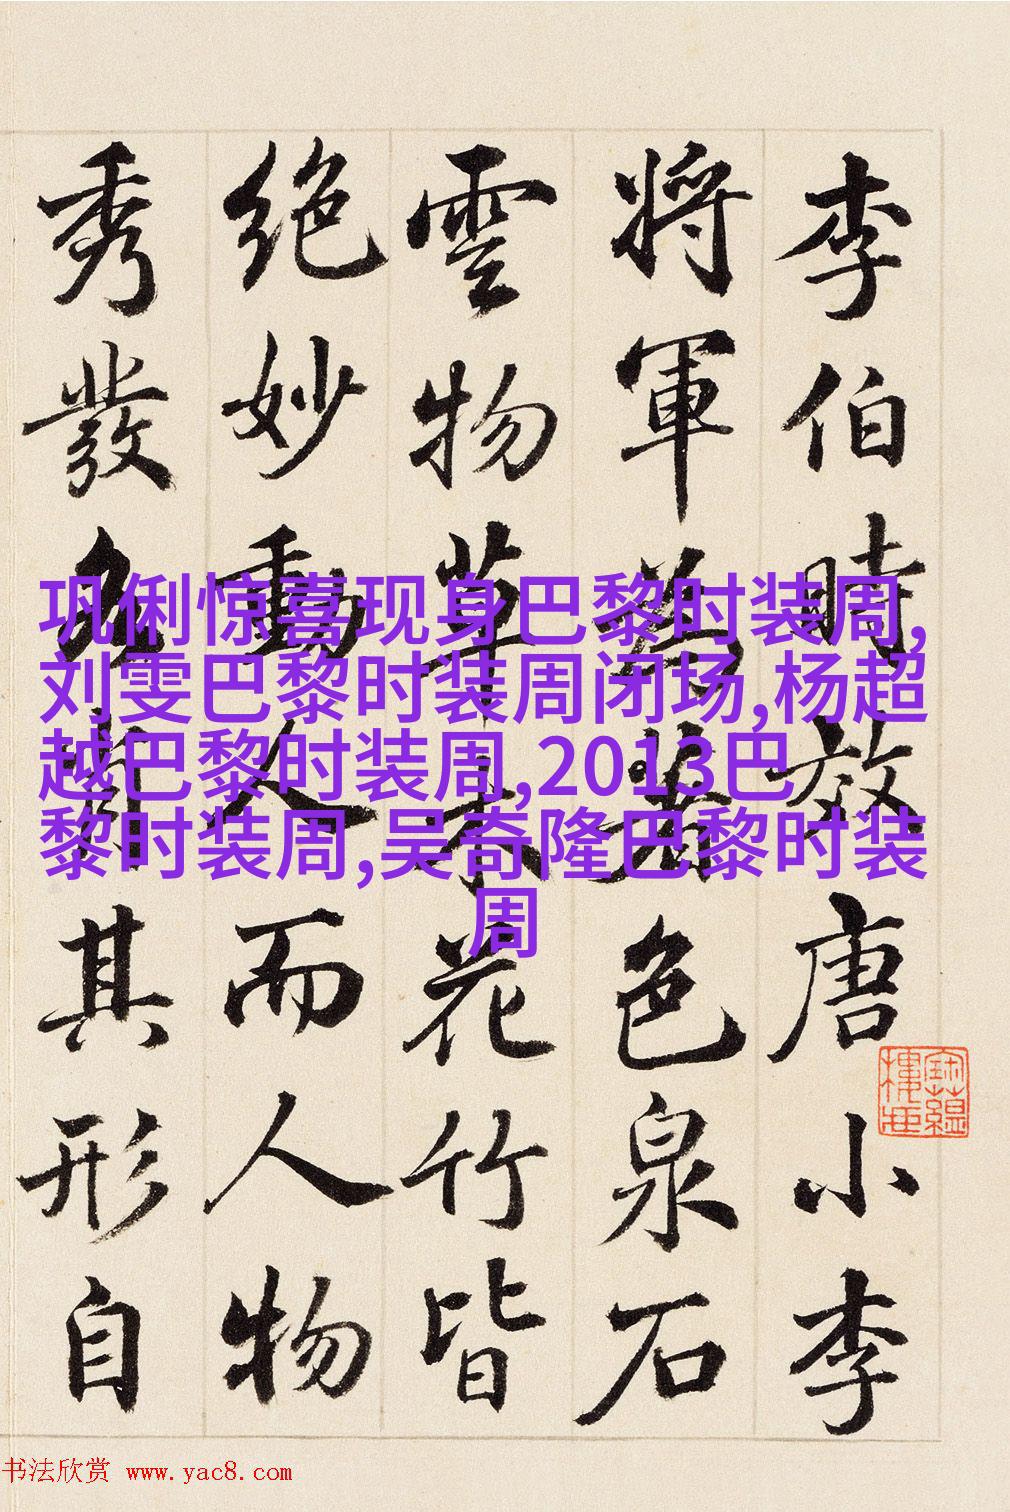 李伯時效唐小李
將軍為著色泉石
雲物草木花竹皆
絕妙動人而人物
秀發各肖其形自
巩俐惊喜现身巴黎时装周,
刘雯巴黎时装周闭场,杨超
越巴黎时装周,2013巴
黎时装周,吴奇隆巴黎时装
周
书法欣赏 www.yac8.com